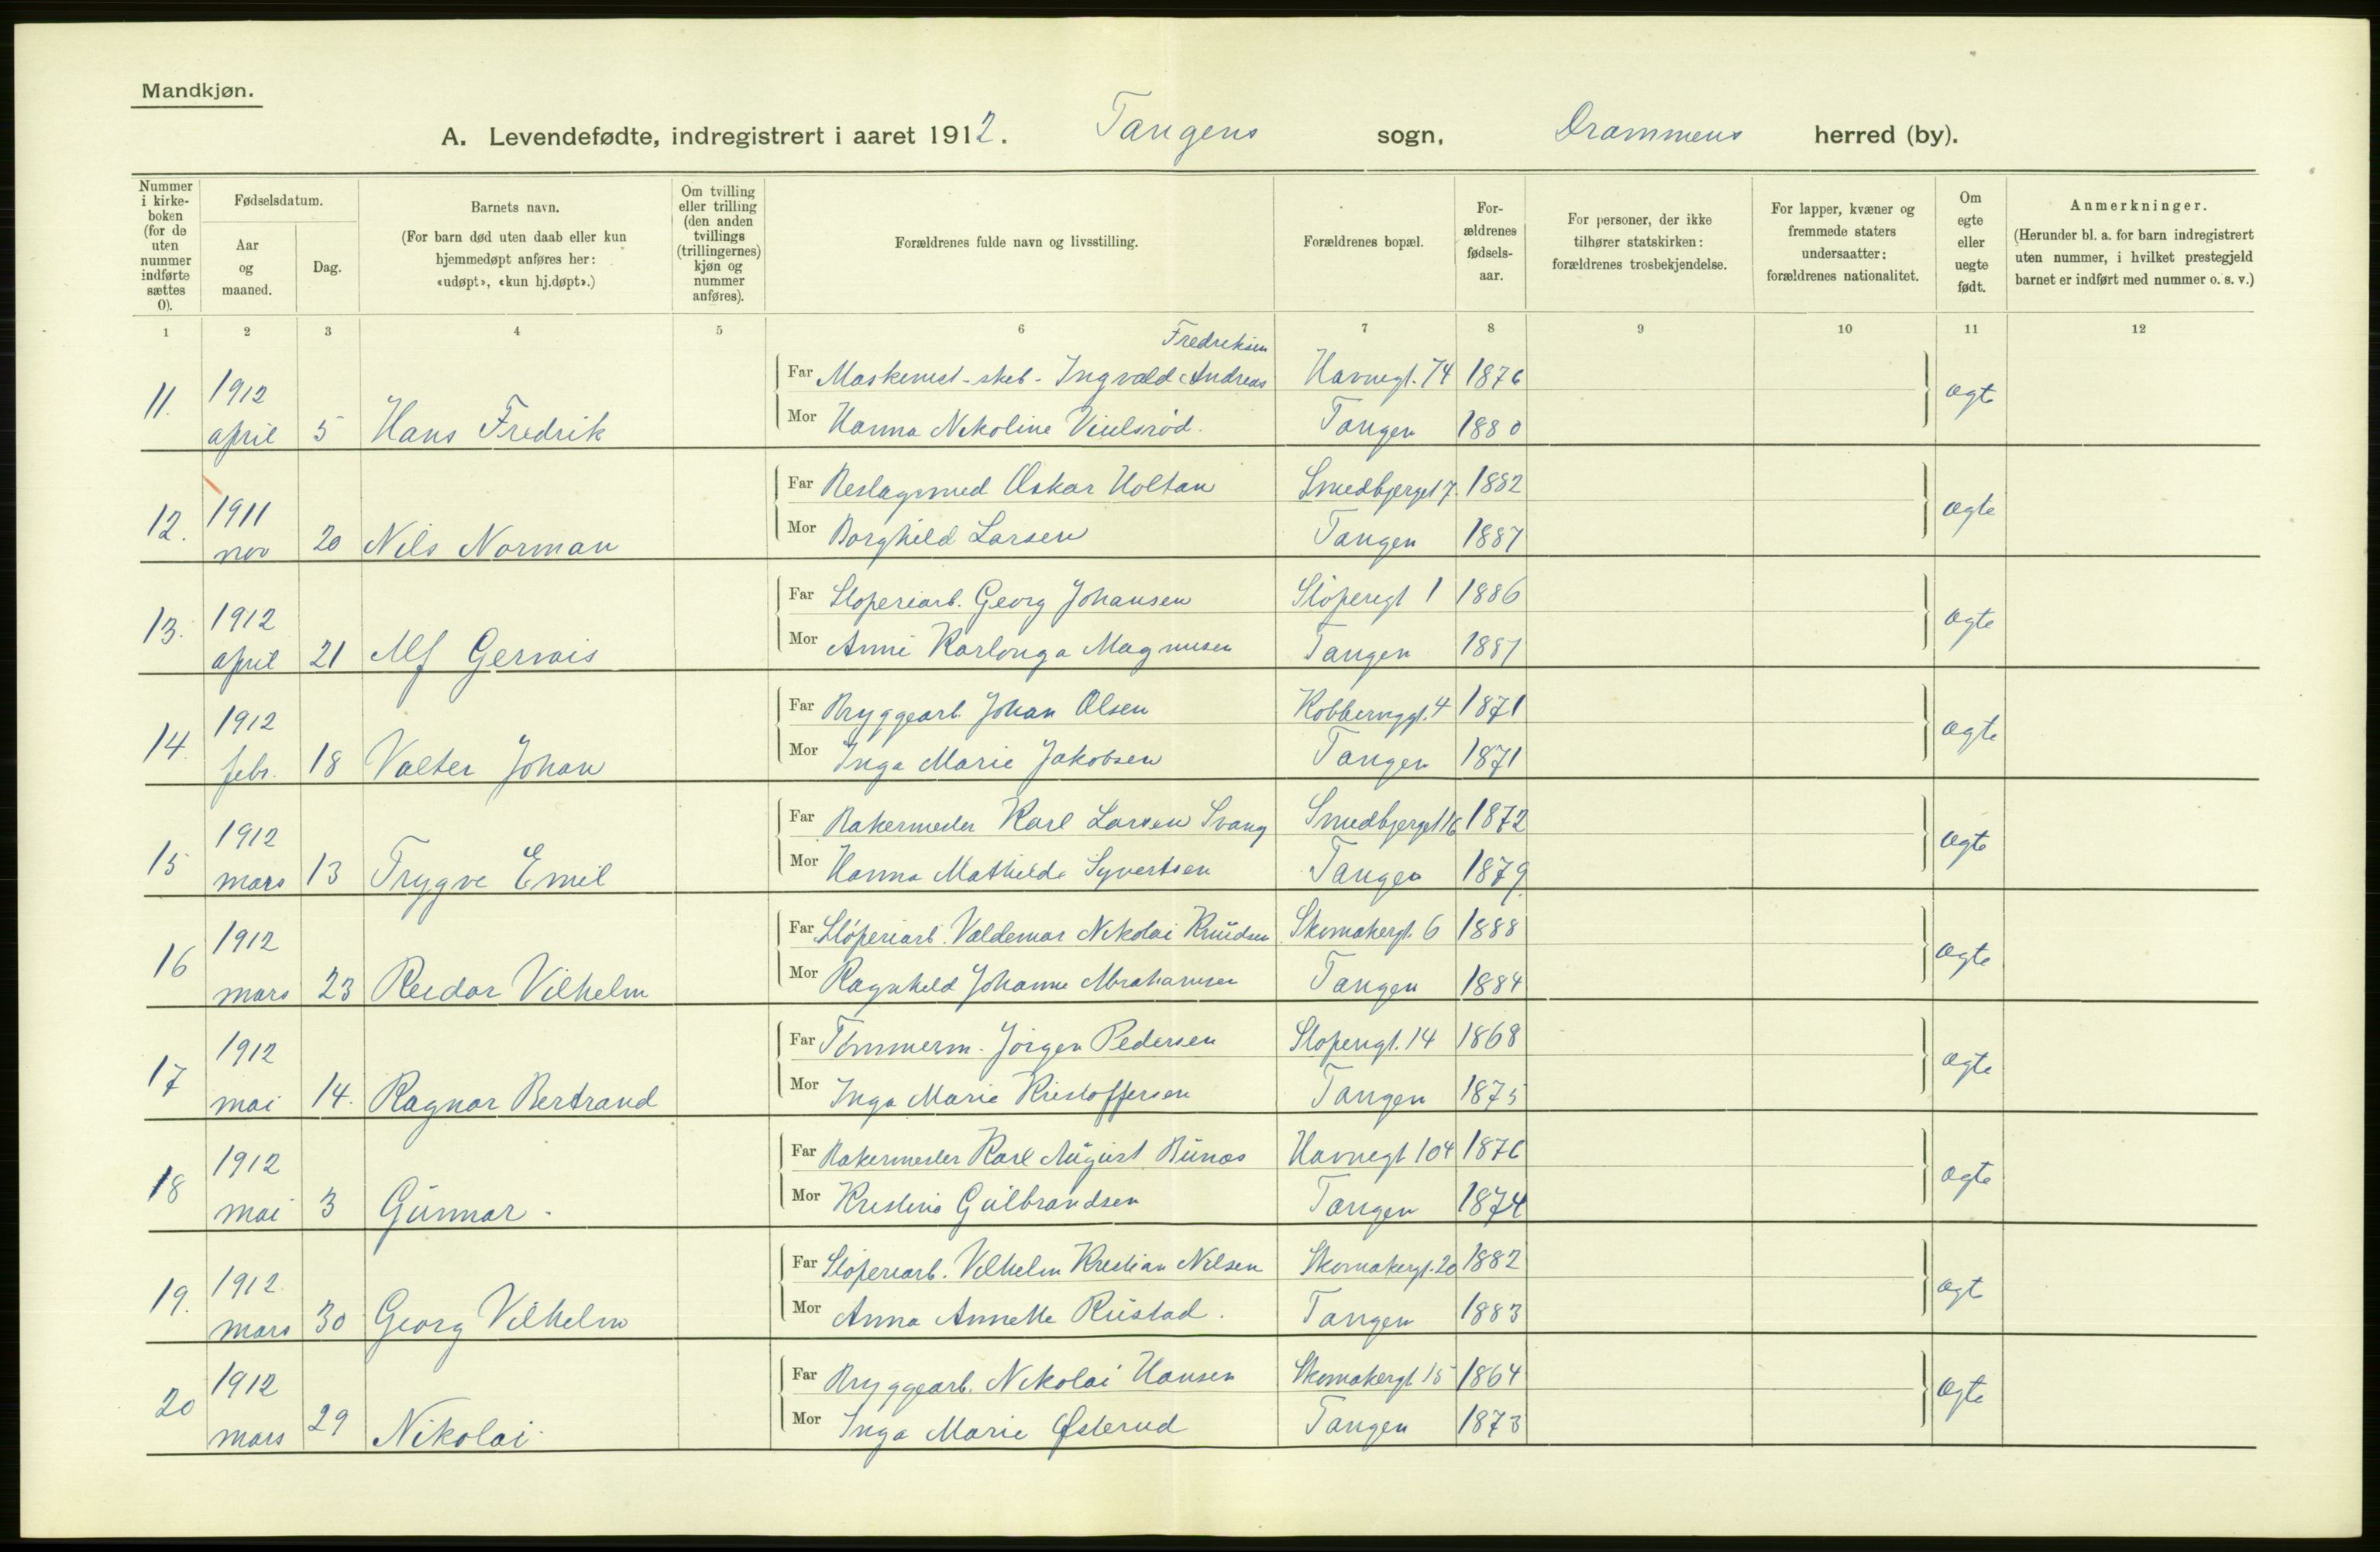 Mandkjøn.
A. Levendefødte, indregistrert i aaret 1912. Tangens sogn, Drammens herred (by).
Nummer i kirke-boken (for de uten nummer indførte sættes 0).
Fødselsdatum.
Aar og maaned.
Dag.
Barnets navn.
(For barn død uten daab eller kun hjemmedøpt anføres her: «udøpt», «kun hj.døpt».)
Om tvilling eller trilling (den anden tvillings (trillingernes) kjøn og nummer anføres).
Forældrenes fulde navn og livsstilling.
Forældrenes bopæl.
For-ældrenes fødsels-aar.
For personer, der ikke tilhører statskirken: forældrenes trosbekjendelse.
For lapper, kvæner og fremmede staters undersaatter: forældrenes nationalitet.
Om egte eller uegte født.
Anmerkninger.
(Herunder bl. a. for barn indregistrert uten nummer, i hvilket prestegjeld barnet er indført med nummer o. s. v.)
1 2 3 4 5 6 7 8 9 10 11 12
Fredriksen
11. 1912 Far Maskinist-skib- Ingvald Andreas Havnegt. 74 1876 ægte
april 5 Hans Fredrik Mor Hanna Nikoline Tangen 1880
12. 1911 Far Beslagsmed Oskar Holtan Smedbjerget 7. 1882 ægte
nov 20 Nils Norman Mor Borghild Larsen Tangen 1887
13. 1912 Far Sloperiarb. Georg Johansen Slöperigt 1 1886 ægte
april 21 Alf Gervais Mor Anni Karlonga Magnusen Tangen 1887
14. 1912 Far Bryggearb. Johan Olsen 4 1871 ægte
febr. 18 Valter Johan Mor Inga Marie Jakobsen Tangen 1871
15 1912 Far Bakermester Karl Larsen Svang Smedbjerget 16 1872 ægte
mars 13 Trygve Emil Mor Hanna Mathilde Syvertsen Tangen 1879
16 1912 Far Slöperiarb. Valdemar Nikolai Knudsen Skomakergt. 6 1888 ægte
mars 23 Reidar Vilhelm Mor Ragnhild Johanne Abrahamsen Tangen 1884
17 1912 Far Tömmerm. Jörgen Pedersen Sloperigt. 14 1868 ægte
mai 14. Ragnar Bertrand Mor Inga Marie Kristoffersen Tangen 1875
18 1912 Far Bakermester Karl August Bunæs Havnegt 104 1876 ægte
mai 3 Gunnar. Mor Kristine Gulbrandsen Tangen 1874
19. 1912. Far Slöperiarb. Vilhelm Kristian Nilsen Skomakergt. 20 1882 ægt
mars 30 Georg Vilhelm Mor Anna Annette Rustad. Tangen 1883
20 1912 Far Bryggearb. Nikolai Hansen Skomakergt 15 1864 ægte
mars 29 Nikolai Mor Inga Marie Østerud Tangen 1873